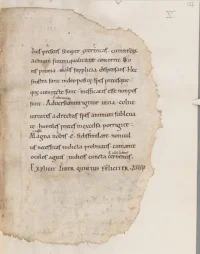 p̄sens semper &ernitas cum nostrorum
actuum futura qualitate concurrit bo
nis premia malis supplicia dispensans. Nec
frustra sunt in deo posit&e spes precesque
que cum rect&e sunt inefficaces esse non pos
sunt. Aduersamini igitur uitia colite
uirtutes ad rectas spes animum subleua
te humiles preces in excelsa porrigite.
Magna uobis ē si dissimulare non uul
tis necessitas indicta probitatis cum ante
oculos agitis iudicis cuncta cernentis.
EXPLICIT LIBER QUINTUS FELICITER